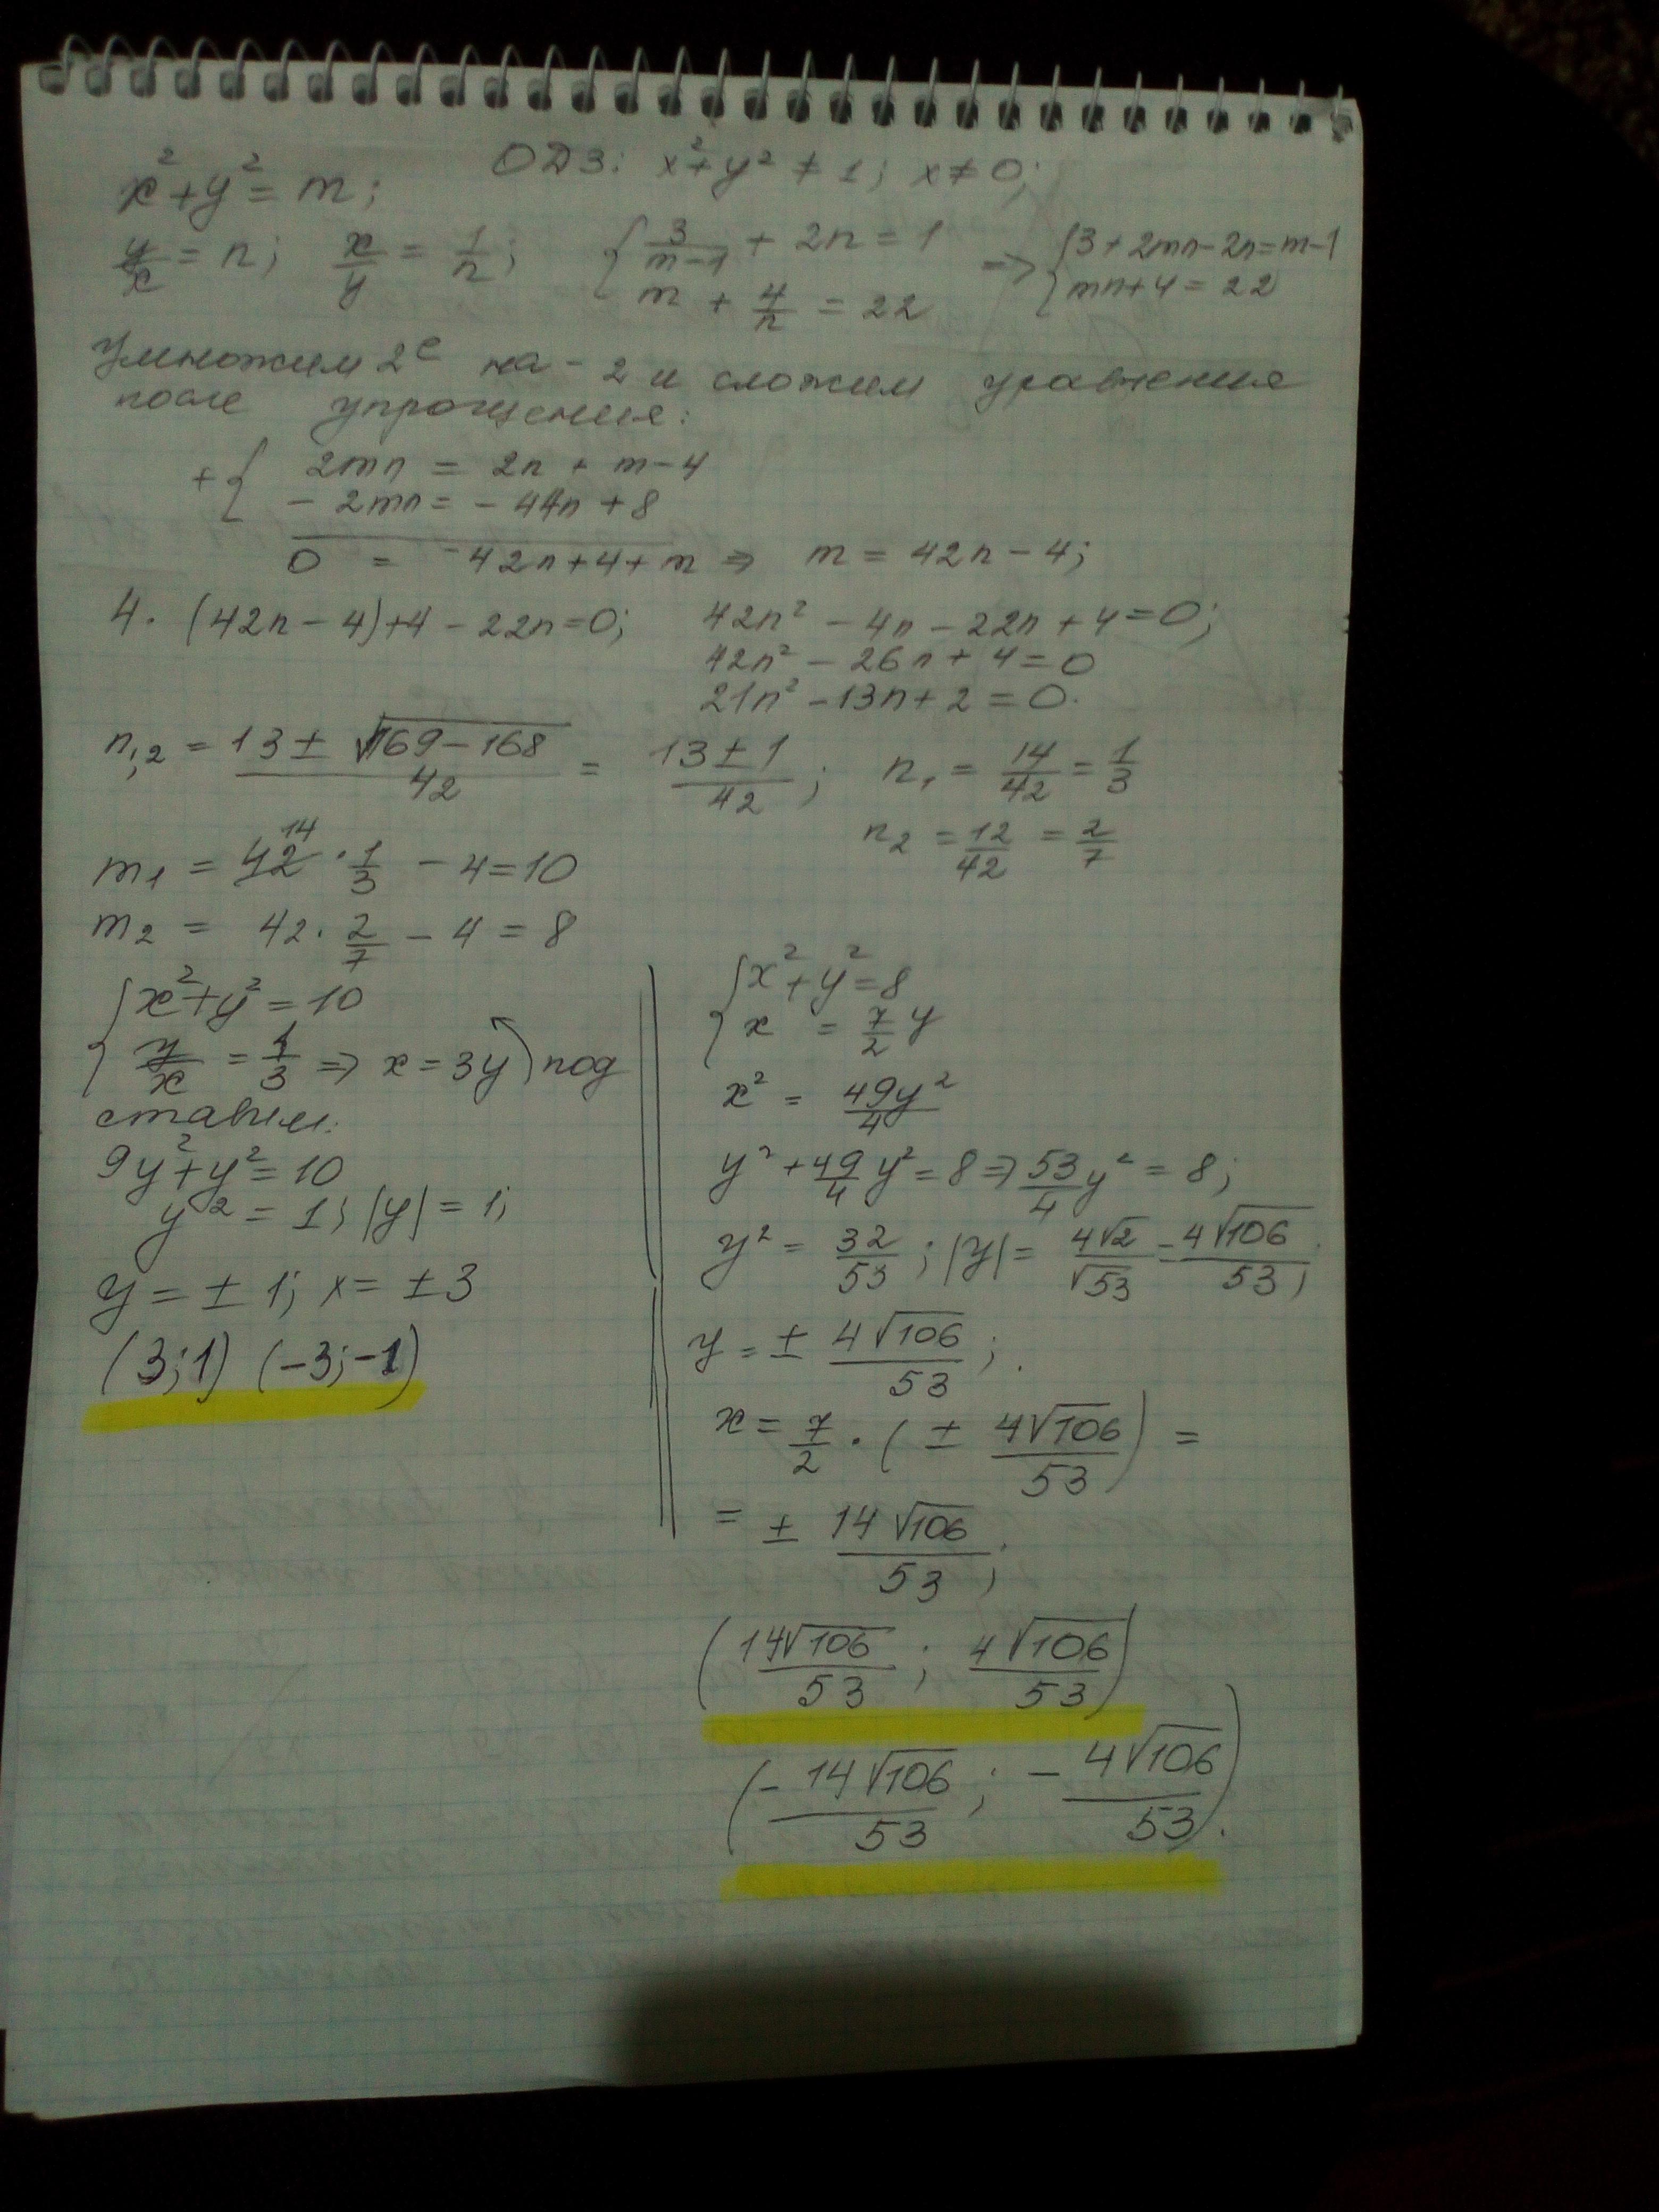 x² + y² = m; ОДЗ: x² + y² ≠ 1; x ≠ 0;
y/x = n; x/y = 1/n; { 3/(m-1) + 2n = 1 => { 3 + 2mn - 2n = m - 1
m + 4/n = 22 mn + 4 = 22
Умножим 2е на -2 и сложим уравнения
после упрощения:
+ { 2mn = 2n + m - 4
- 2mn = - 44n + 8
0 = -42n + 4 + m => m = 42n - 4;
4. (42n - 4) + 4 - 22n = 0; 42n² - 4n - 22n + 4 = 0;
42n² - 26n + 4 = 0
21n² - 13n + 2 = 0.
n1,2 = (13 ± √(169 - 168))/42 = (13 ± 1)/42; n₁ = 14/42 = 1/3
n₂ = 12/42 = 2/7
m₁ = 42 14 · 1/3 - 4 = 10
m₂ = 42 · 2/7 - 4 = 8
{ x² + y² = 10
y/x = 1/3 => x = 3y ) под
ставим:
9y² + y² = 10
y² = 1; |y| = 1;
y = ± 1; x = ± 3
(3; 1) (-3; -1)
{ x² + y² = 8
x = 7/2 y
x² = 49y²/4
y² + 49/4 y² = 8 => 53/4 y² = 8;
y² = 32/53; |y| = 4√2/√53 = 4√106/53;
y = ± 4√106/53;
x = 7/2 · (± 4√106/53) =
= ± 14√106/53;
(14√106/53; 4√106/53)
(- 14√106/53; - 4√106/53).